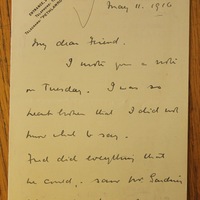 May 11. 1916
My dear Friend.
I wrote you a note
on Tuesday. I was so
heart broken that I did not
know what to say.
Fred did everything that
he could, saw Mr